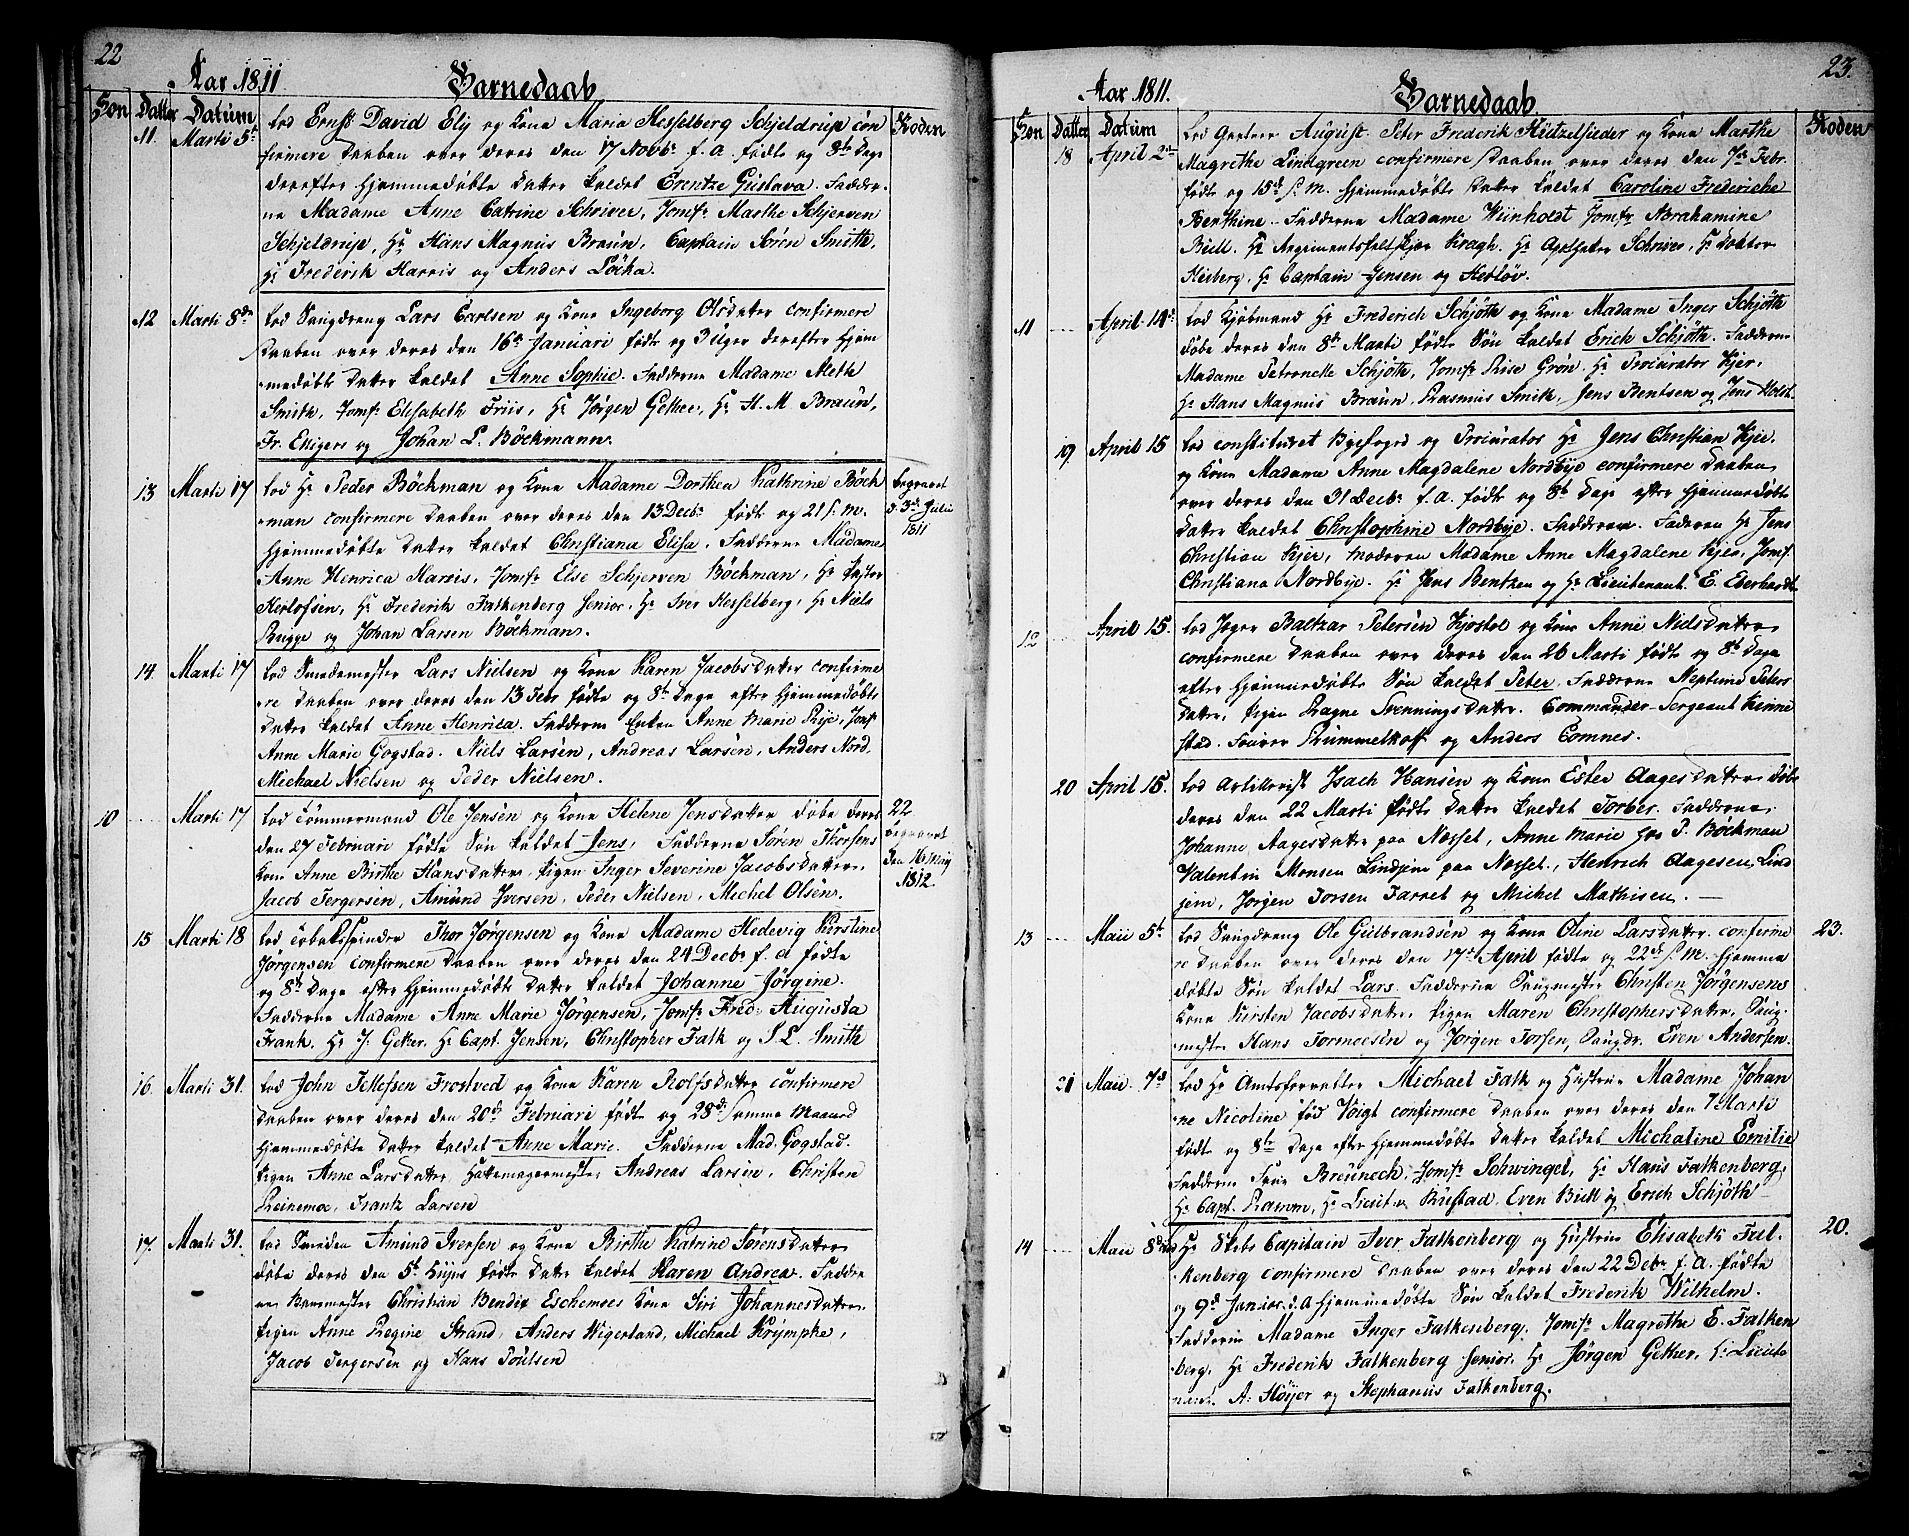 22
Aar 1811 Barnedaab
Søn Datter Datum Noden
11. Marti 5t Lod Ernst David Ely og Kone Maria Hesselberg Schjeldrup con
firmere Daaben over deres den 17 Novbr f. a. fødte og 8de Dage
derefter Hjemmedøbte Datter kaldet Erentze Gustava. Faddre-
ne Madame Anne Catrine Schriver, Jomfr Marthe Schjerven
Schjeldrup, Hr Hans Magnus Braun, Captain Søren Smith,
Hr Frederik Harris og Anders Löcka.
12 Marti 8de Lod Saugdreng Lars Carlsen og Kone Ingeborg Olsdatter confirmere
Daaben over deres den 16de Januari fødte og 3 Uger derefter Hjem
medøbte Datter kaldet Anne Sophie. Fadderne Madame Meth
Smith, Jomfr Elisabeth Friis, Hr Jørgen Getker, Hr H. M. Braun,
Fr. Ekigers og Johan L. Böckmann.
13 Marti 17 Lod Hr Peder Böckman og Kone Madame Dorthea Kathrine Böck
man confirmere Daaben over deres den 13 Decbr født og 21 s. m.
Hjemmedøbte Datter kaldet Christiana Elisa. Fadderne Madame
Anne Henrica Harris, Jomfr Else Schjerven Böckman, Hr Pastor
Herlofsen, Hr Frederik Falkenberg Senior, Hr Iver Hesselberg, Hr Niels
Brigge og Johan Larsen Böckman.
begravet
d. 3de Julii
1811
14. Marti 17 Lod Smedemester Lars Nielsen og Kone Karen Jacobsdatter confirme
re Daaben over deres den 13 Febr fødte og 8de Dage efter Hjemmedøbte
Datter kaldet Anne Henrica. Fadderne Enken Anne Marie Rye, Jomf
Anne Marie Gogstad. Niels Larsen, Andreas Larsen, Anders Nord,
Michael Nielsen og Peder Nielsen.
10 Marti 17 Lod Tømmermand Ole Jensen og Kone Helene Jensdatter døbe deres
den 27 Februari fødte Søn kaldet Jens. Fadderne Søren Thorsens
Kone Anne Birthe Hansdatter, Pigen Inger Severine Jacobsdatter.
Jacob Tergersen, Amund Iversen, Peder Nielsen, Michel Olsen.
22
begravet
den 16 Maj
1812.
15 Marti 18 Lod Tobaksspinder Thor Jørgensen og Kone Madame Hedevig Kirstine
Jørgensen confirmere Daaben over deres den 24 Decbr f. a fødte
og 8de Dage efter Hjemmedøbte Datter kaldet Johanne Jørgine.
Fadderne Madame Anne Marie Jørgensen, Jomfr Fred: Augusta
Frank. Hr J. Getker. Hr Capt. Jensen, Christopher Falk og S. L. Smith
16. Marti 31. Lod John Tellefsen Frostved og Kone Karen Rolfsdatter confirmere
Daaben over deres den 20de Februari født og 28de samme Maaned
Hjemmedøbte Datter kaldet Anne Marie. Fadderne Mad. Gogstad.
Pigen Anne Larsdatter, Hattemagermester Andreas Larsen, Christen
Reinemoe, Frantz Larsen
17. Marti 31. Lod Smeden Amund Iversen og Kone Birthe Katrine Sørensdatter
døbe deres den 5t Hujus fødte Datter kaldet Karen Andrea. Faddre
ne Christian Bendix Eschemoes Kone Siri Johannesdatter.
Pigen Anne Regine Strand, Anders Wigerland, Michael Krympke,
Jacob Tergersen og Hans Poulsen
23.
Aar 1811. Barnedaab
Søn Datter Datum Noden
18 April 2den Lod August Peter Frederik Hützelsieder og Kone Marthe
Magrethe Lindgreen confirmere Daaben over deres den 7de Febr.
fødte og 15de s. M. Hjemmedøbte Datter kaldet Caroline Frederiche
Benthine. Fadderne Madame Wiinholdt Jomfr Abrahamine
Biell. Hr Regimentsfeltskjær Kragh. Hr Apotheker Schriver, Hr Doktor
Heiberg, Hr Captain Jensen og Herløv.
11 April 14de Lod Kjøbmand Hr Frederich Schjøth og Kone Madame Inger Schjøth
døbe deres den 8de Marti fødte Søn kaldet Erich Schjøth. Fadderne
Madame Petronelle Schjøth, Jomfr Rise Grøn. Hr Procurator Kjer,
Hr Hans Magnus Braun, Rasmus Smith, Jens Bentsen og Jens Holst.
19. April 15 Lod constitueret Byefoged og Procurator Hr Jens Christian Kjer.
og Kone Madame Anne Magdalene Nordbye confirmere Daaben
over deres den 31 Decbr. f. a. fødte og 8de Dage efter Hjemmedøbte
Datter kaldet Christophine Nordbye. Fadderne. Faderen Hr Jens
Christian Kjer, Moderen Madame Anne Magdalene Kjer, Jomf.
Christiana Nordbye. Hr Jens Bentzen og Hr Lieutenant E. Eberhardt.
12 April 15. Lod Jeger Baltzar Petersen Kjøstol og Kone Anne Nielsdatter
confirmere Daaben over deres den 26 Marti fødte og 8de Dage
efter Hjemmedøbte Søn kaldet Peter. Fadderne Neptune Peters
datter, Pigen Ragne Svenningsdatter. Commander-Sergeant Kenne
stad. Rummelhoff og Anders Comnes.
20 April 15. Lod Artillerist Isach Hansen og Kone Ester Aagesdatter døbe
deres den 22 Marti fødte Datter kaldet Torber. Fadderne,
Johanne Aagesdatter paa Nesset, Anne Marie hos P. Böckman
Valentin Monsen Lindjem paa Nesset. Henrich Aagesen Lind
jem, Jørgen Torsen Farret og Michel Mathisen.
13 Maii 5t Lod Saugdreng Ole Gulbrandsen og Kone Oline Larsdatter confirme
re Daaben over deres den 17de April fødte og 22de s. M. Hjemme
døbte Søn kaldet Lars. Fadderne Saugmester Christen Jørgensens
Kone Kirsten Jacobsdatter, Pigen Maren Christophersdatter, Saug-
mester Hans Tormoesen og Jørgen Torsen, Saugdr. Even Andersen.
23.
21 Maii 7de Lod Hr Amtsforvalter Michael Falk og Hustrue Madame Johan
ne Nicoline fød Voigt confirmere Daaben over deres den 7 Marti
fødte og 8de Dage efter Hjemmedøbte Datter kaldet Michaline Emilie
Fadderne Frue Breuneck, Jomfr Schwingel, Hr Hans Falkenberg,
Hr Capt. Ramm, Hr Lieut. Rustad. Even Biell og Erich Schjøth
14 Maii 8de Lod Hr Skibs Capitain Iver Falkenberg og Hustrue Elisabeth Fal-
kenberg confirmere Daaben over deres den 22 Debr f. A. fødte
og 9de Januar. d. A Hjemmedøbte Søn kaldet Frederik Wilhelm.
Fadderne Madame Inger Falkenberg. Jomfr Magrethe E. Falken
berg, Hr Frederik Falkenberg Senior. Hr Jørgen Getker, Hr Lieute
nant. A. Høyer og Stephanus Falkenberg.
20.